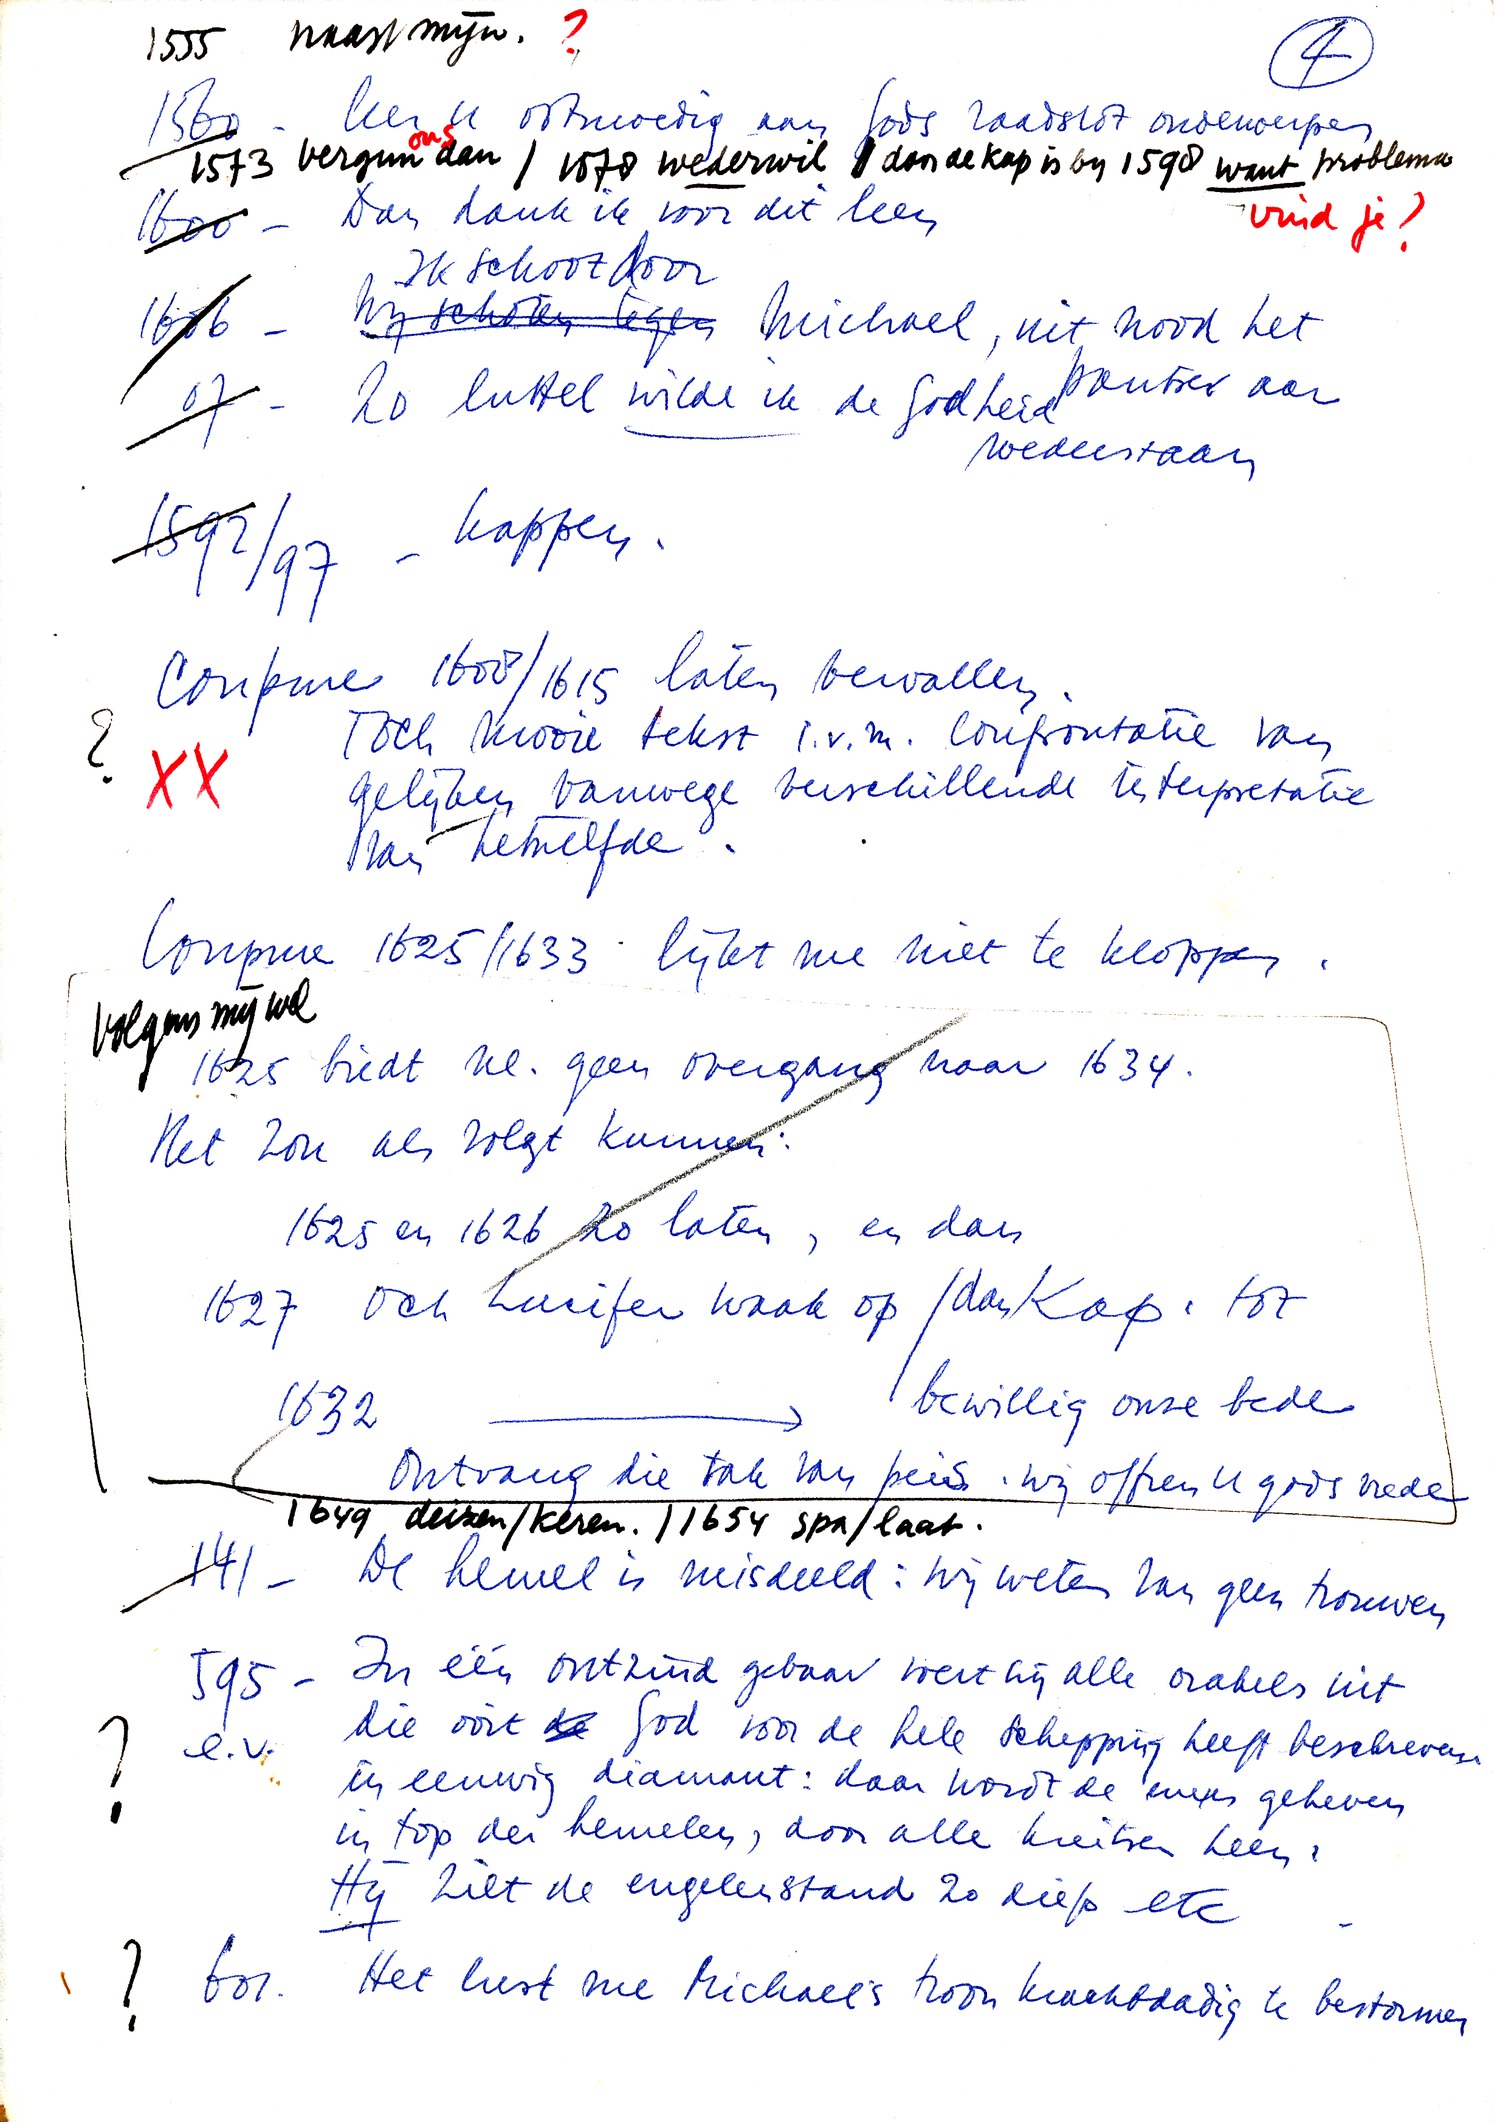 1555 naast mijn. ?
4
1560 - leer u ootmoedig aan Gods raadslot onderwerpen
ons
1573 vergun dan / 1578 wederwil / dan de kap is by 1598 want problema
vind je?
1600 - Dan dank ik voor dit leen
Ik schoot door
1606 - Wij schoten tegen Michael, uit nood het
pantser aan
07 - Zo luttel wilde ik de Godheid
wederstaan
1592/97 - kappen.
Coupure 1608/1615 laten vervallen.
? Toch mooie tekst i.v.m. confrontatie van
XX gelijken vanwege verschillende interpretatie
van hetzelfde.
Coupure 1625/1633 lijkt me niet te kloppen.
Volgens mij wel
1625 biedt nl. geen overgang naar 1634.
Het zou als volgt kunnen:
1625 en 1626 zo laten, en dan
1627 Och Lucifer waak op / dan Kap. tot
1632 bewillig onze bede
Ontvang die tak van peis. wij offren u gods vrede
1649 deizen/keren. / 1654 spa/laat.
141 - De hemel is misdeeld: wij weten van geen trouwen
595 - In één ontzind gebaar wert hij alle orakels uit
e.v. die ooit de God voor de hele schepping heeft beschreven
? in eeuwig diamant: daar wordt de mens geheven
in top der hemelen, door alle kreitsen heen.
Hij ziet de engelenstand zo diep etc
? 601. Het lust me Michaels troon krachtdadig te bestormen